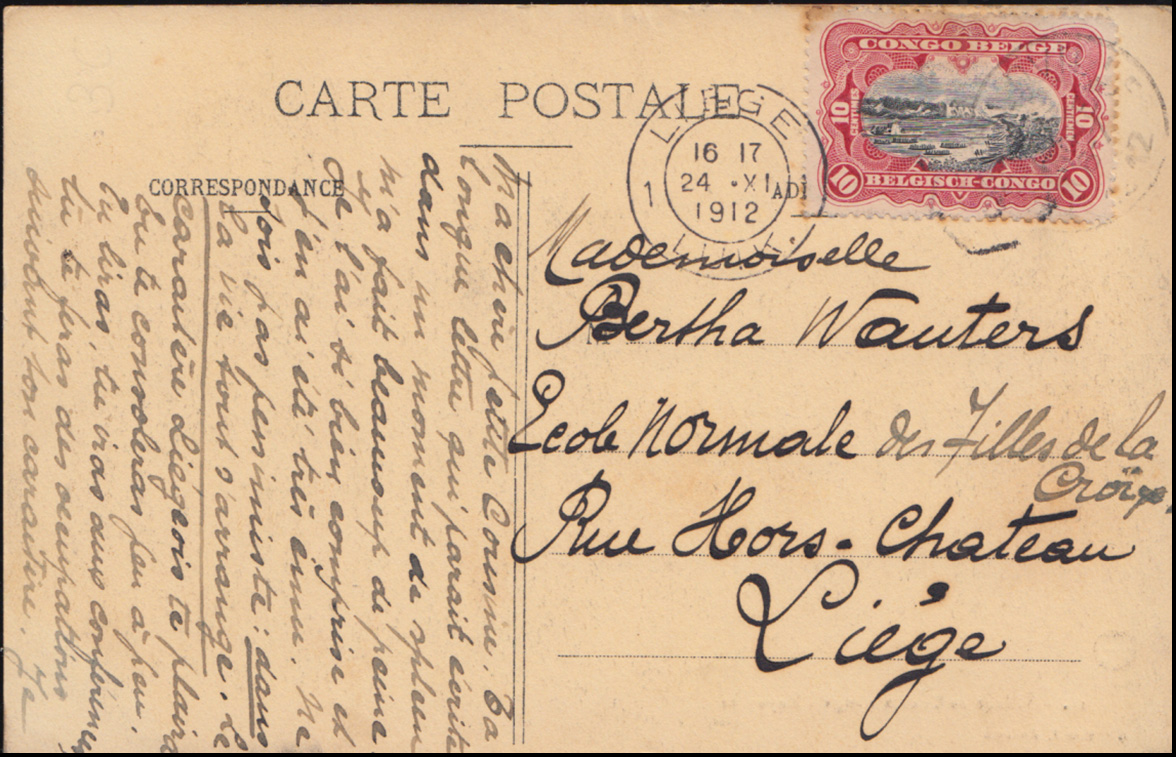 CARTE POSTALE
CORRESPONDANCE
CONGO BELGE
10 CENTIMES
10 CENTIEMEN
10 BELGISCH-CONGO 10
LIEGE
16 17
1 24 ·XI
1912
AD
12
Mademoiselle
Bertha Wauters
Ecole Normale des Filles de la
Croix,
Rue Hors-Chateau
Liège
Ma chère petite Cousine. Ta
longue lettre qui parait écrite
dans un moment de spleen
m'a fait beaucoup de peine
Je l'ai si bien comprise et
j'en ai été très ému. Ne
sois pas pessimiste: dans
la vie tout s'arrange. Le
caractère Liégeois te plaira
Tu te consoleras peu à peu.
Tu liras, tu iras aux conférences
tu te feras des occupations
suivant ton caractère. Je